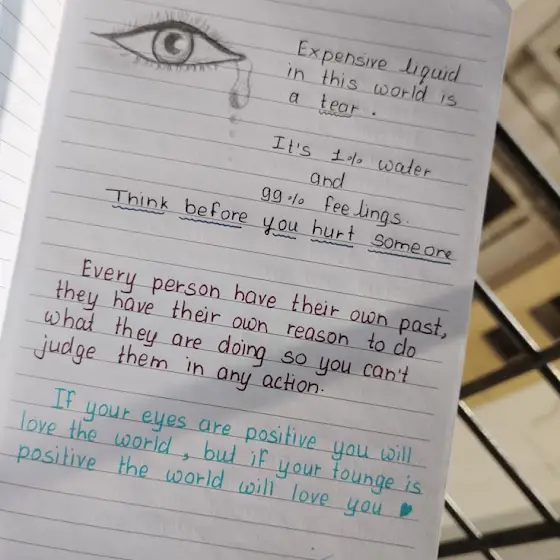 Expensive liquid
in this world is
a tear.
It's 1% water
and
99% feelings.
Think before you hurt someone
Every person have their own past,
they have their own reason to do
what they are doing so you can't
judge them in any action.
If your eyes are positive you will
love the world, but if your tounge is
positive the world will love you ♥